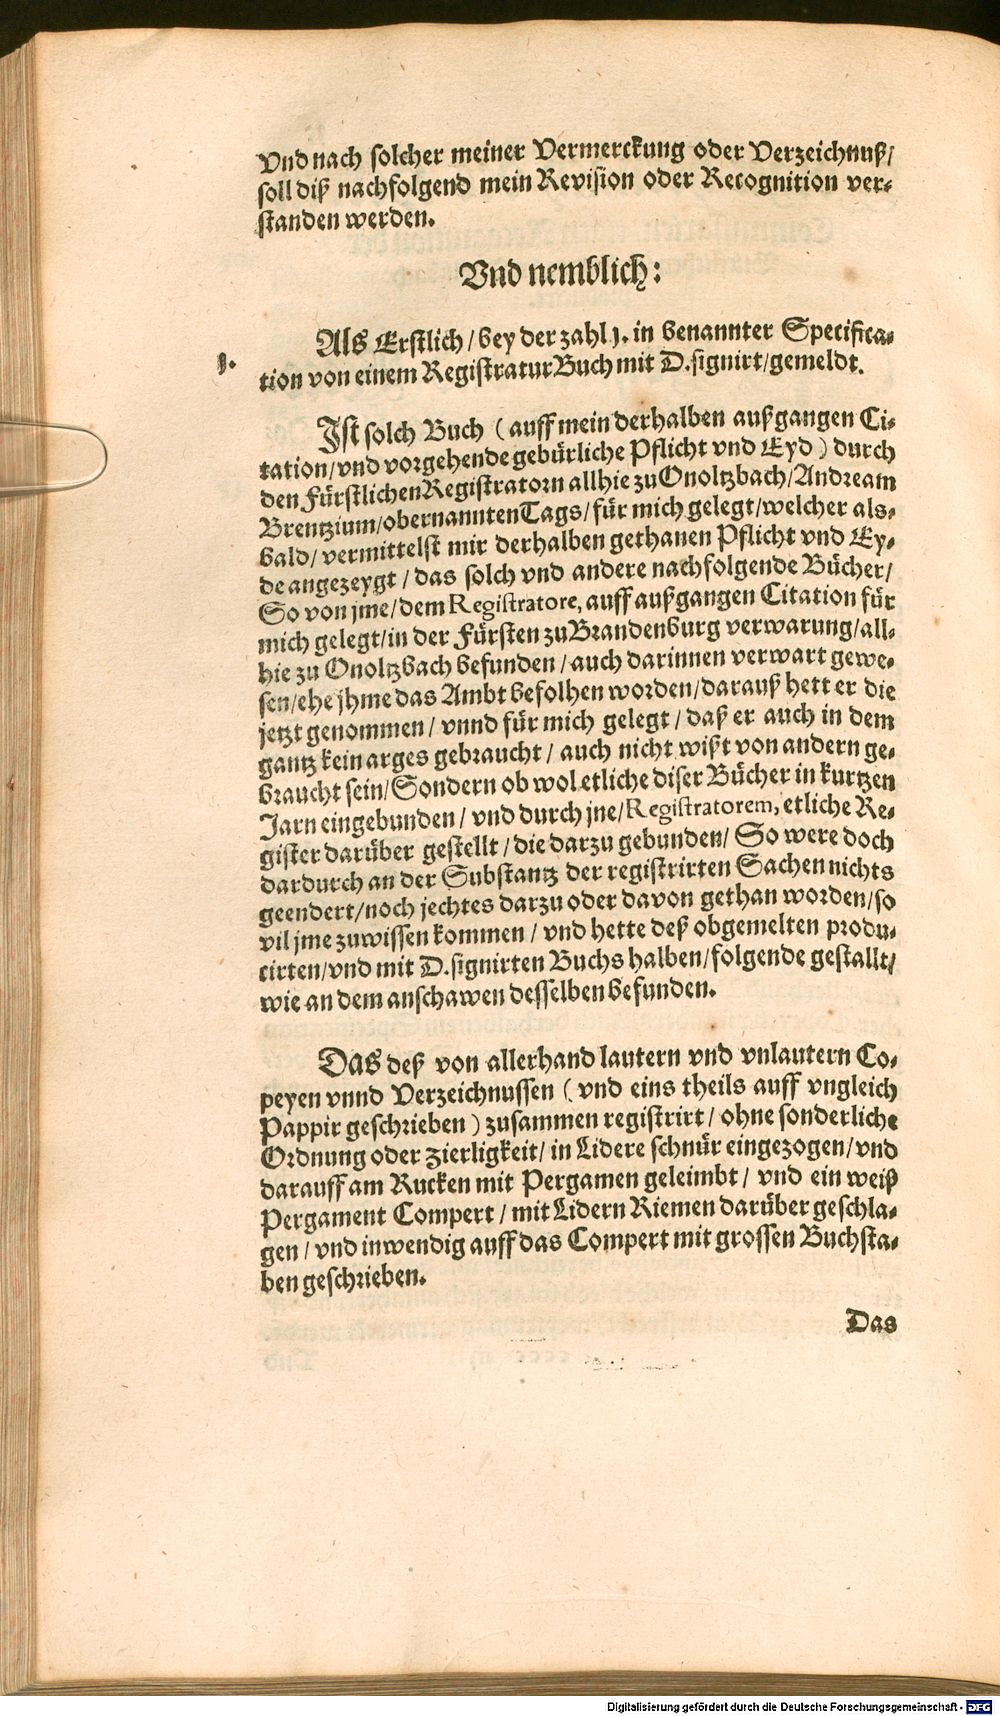 Vnd nach solcher meiner Vermerckung oder Verzeichnuß/
soll diß nachfolgend mein Revision oder Recognition ver-
standen werden.
Vnd nemblich:
Als Erstlich/bey der zahl j. in benannter Specifica-
j.
tion von einem Registratur Buch mit D. signirt/gemeldt.
Ist solch Buch (auff mein derhalben außgangen Ci-
tation/vnd vorgehende gebürliche Pflicht vnd Eyd) durch
den Fürstlichen Registratorn allhie zu Onoltzbach/Andream
Brentzium/obernannten Tags/für mich gelegt/welcher als-
bald/vermittelst mir derhalben gethanen Pflicht vnd Ey-
de angezeygt/das solch vnd andere nachfolgende Bücher/
So von jme/dem Registratore, auff außgangen Citation für
mich gelegt/in der Fürsten zu Brandenburg verwarung/all-
hie zu Onoltzbach befunden/auch darinnen verwart gewe-
sen/ehe jhme das Ambt befolhen worden/darauß hett er die
jetzt genommen/vnnd für mich gelegt/daß er auch in dem
gantz kein arges gebraucht/auch nicht wißt von andern ge-
braucht sein/Sondern ob wol etliche diser Bücher in kurtzen
Jarn eingebunden/vnd durch jne/Registratorem, etliche Re-
gister darüber gestellt/die darzu gebunden/So were doch
dardurch an der Substantz der registrirten Sachen nichts
geendert/noch jechtes darzu oder davon gethan worden/so
vil jme zuwissen kommen/vnd hette deß obgemelten produ-
cirten/vnd mit D. signirten Buchs halben/folgende gestallt/
wie an dem anschawen desselben befunden.
Das deß von allerhand lautern vnd vnlautern Co-
peyen vnnd Verzeichnussen (vnd eins theils auff vngleich
Pappir geschrieben) zusammen registrirt/ohne sonderliche
Ordnung oder zierligkeit/in Lidere schnür eingezogen/vnd
darauff am Rucken mit Pergamen geleimbt/vnd ein weiß
Pergament Compert/mit Lidern Riemen darüber geschla-
gen/vnd inwendig auff das Compert mit grossen Buchsta-
ben geschrieben.
Das
Digitalisierung gefördert durch die Deutsche Forschungsgemeinschaft - DFG